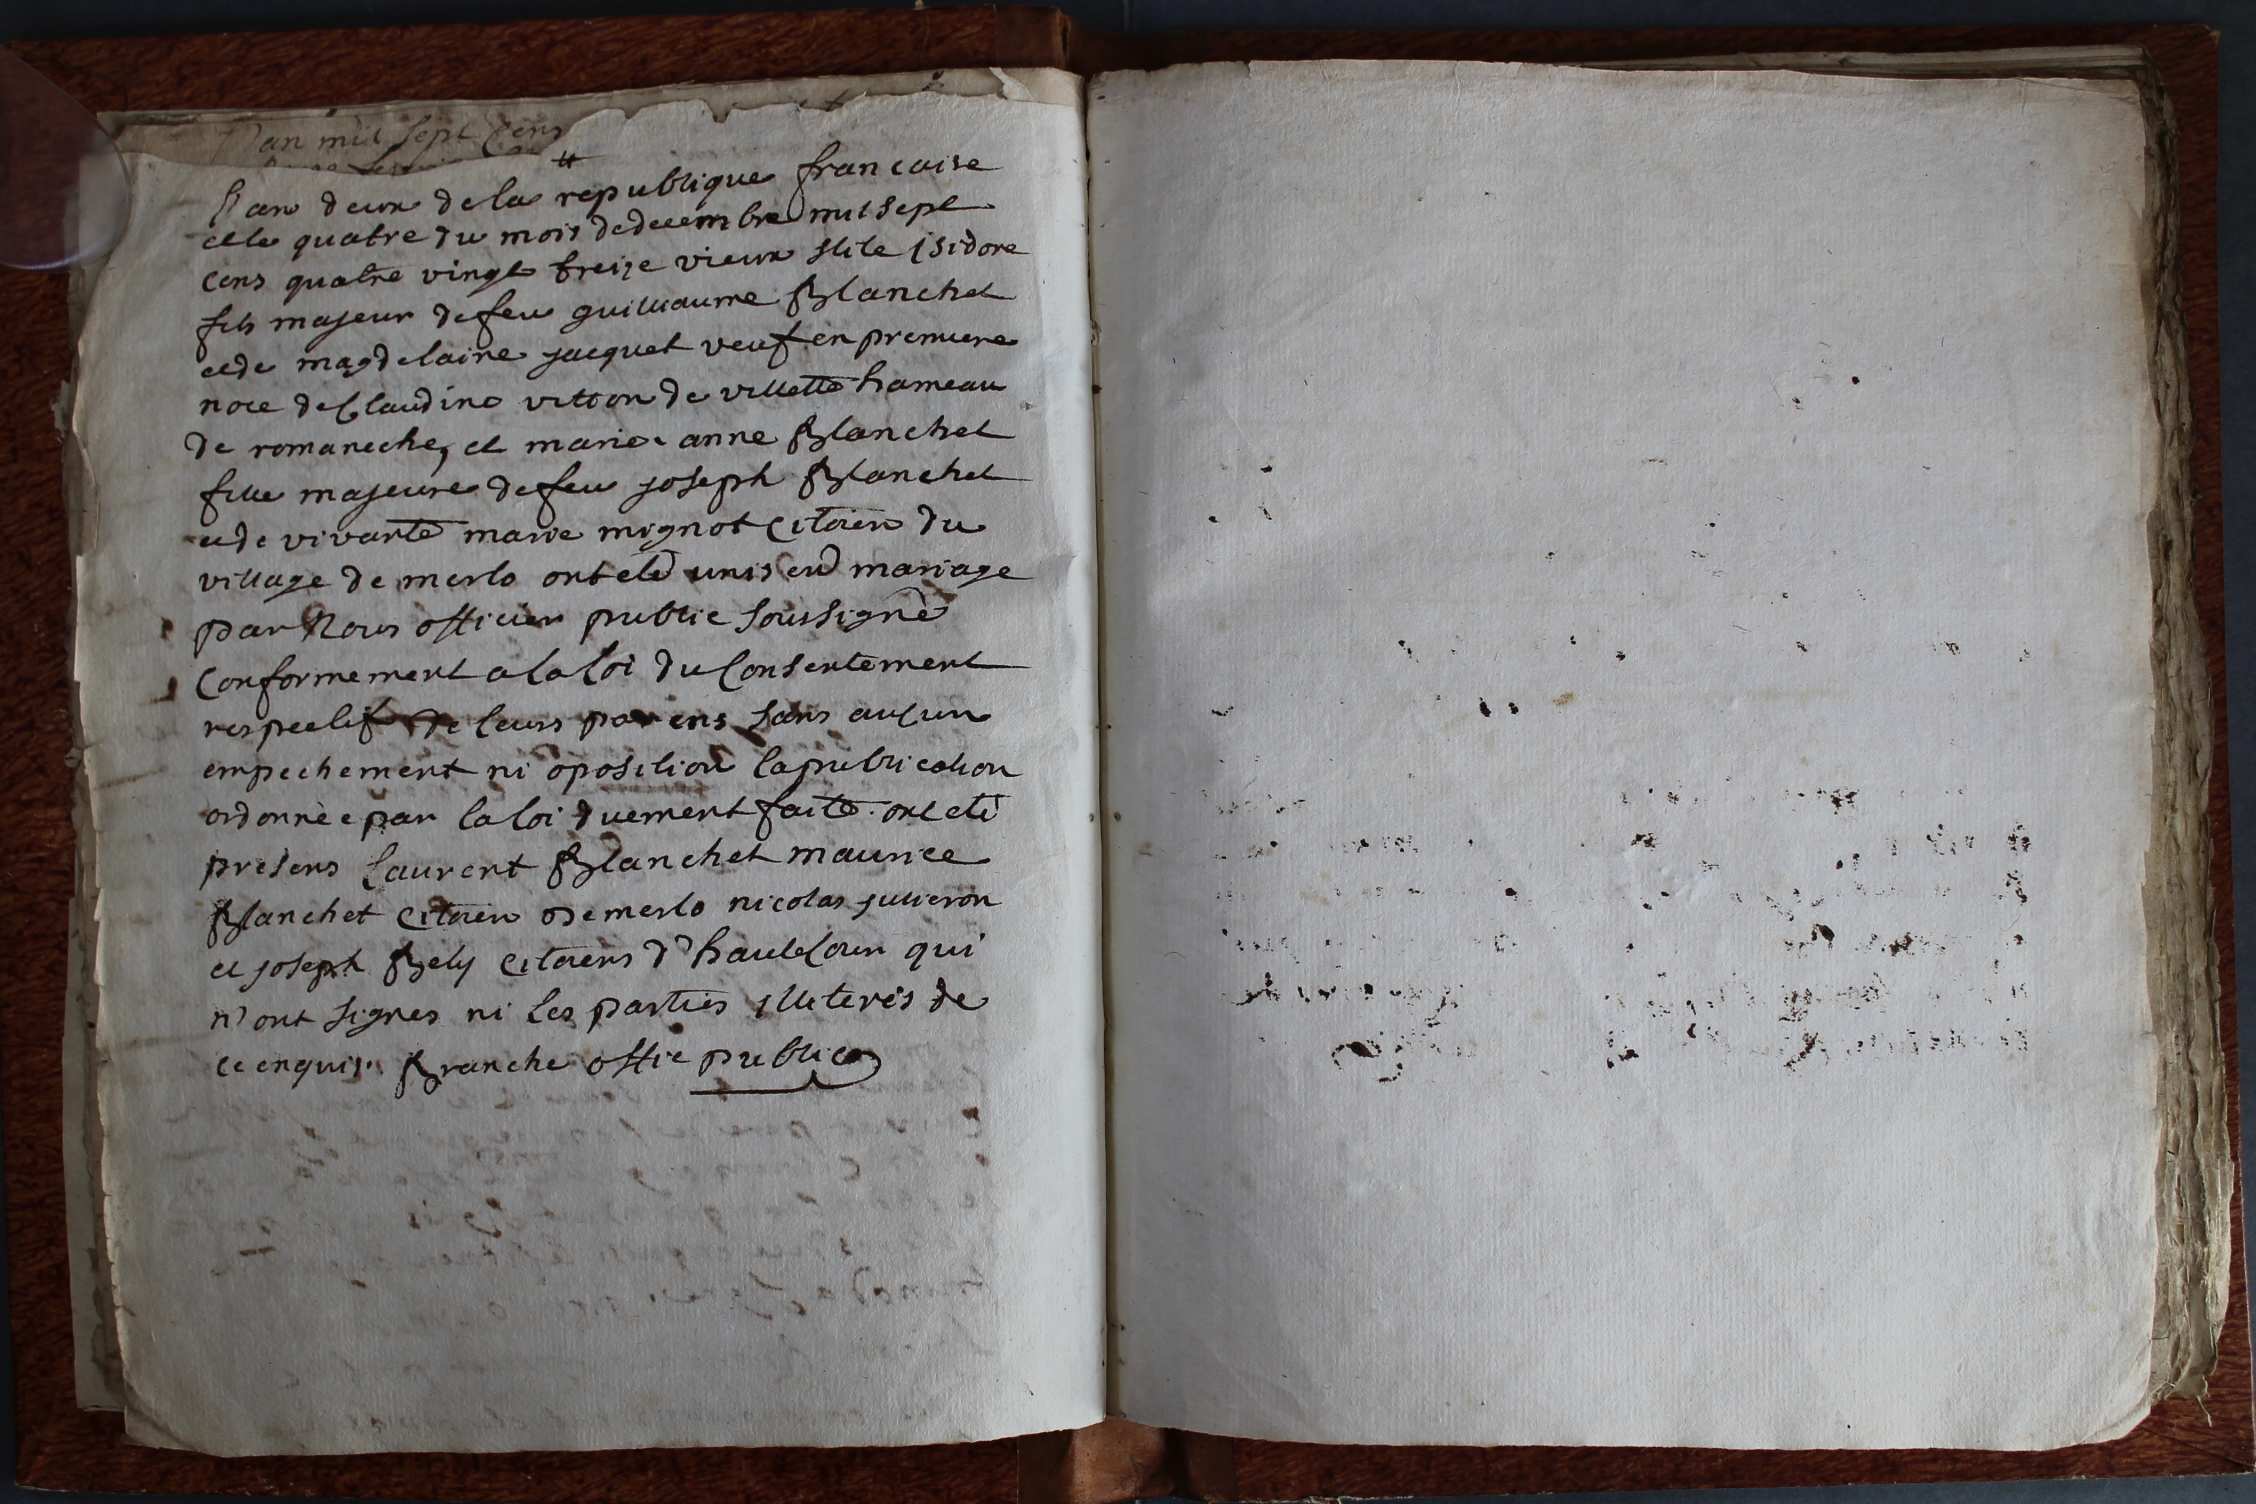 L'an mil sept Cens
L'an deux de la republique francaise
et le quatre du mois de decembre mil sept
cens quatre vingt treize vieux stile isidore
fils majeur de feu guilliaume Blanchet
et de magdelaine jacquet veuf en premiere
noce de Claudine vitton de villette hameau
de romaneche, et marie anne Blanchet
fille majeure de feu joseph Blanchet
et de vivante marie mignot Citoien du
village de merlo ont eté unis en mariage
par Nous officier public soussigné
Conformement a la loi du Consentement
respectif de leurs parens sans aucun
empechement ni oposition la publication
ordonnée par la loi duement faite. ont eté
presens Laurent Blanchet maurice
Blanchet Citoien de merlo nicolas julieron
et joseph Bely Citoiens d'hauteCour qui
n'ont signes ni les parties illiterés de
ce enquis. Branche offic public